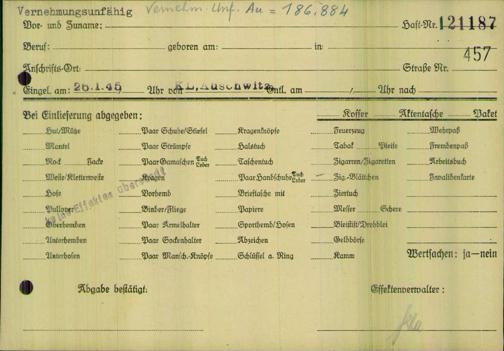 Vernehmungsunfähig Vernehm. Unf. Au = 186.884
Vor- und Zuname: Haft-Nr. 121187
Beruf: geboren am: in 457
Anschrifts-Ort: Straße Nr.
Eingel. am: 26.1.45 Uhr von KL. Auschwitz Entl. am Uhr nach
Bei Einlieferung abgegeben: Koffer Aktentasche Paket
Hut/Mütze Paar Schuhe/Stiefel Kragenknöpfe Feuerzeug Wehrpaß
Mantel Paar Strümpfe Halstuch Tabak Pfeife Fremdenpaß
Rock Jacke Paar Gamaschen Tuch Leder Taschentuch Zigarren/Zigaretten Arbeitsbuch
Weste/Kletterweste Kragen Paar Handschuhe Tuch Leder Zig.-Blättchen Invalidenkarte
Hose Vorhemd Brieftasche mit Ziertuch
Pullover Binder/Fliege Papiere Messer Schere
Oberhemden Paar Ärmelhalter Sporthemd/Hosen Bleistift/Drehblei
Unterhemden Paar Sockenhalter Abzeichen Geldbörse
Unterhosen Paar Mansch.-Knöpfe Schlüssel a. Ring Kamm Wertsachen: ja—nein
Keine Effekten
Abgabe bestätigt: Effektenverwalter: